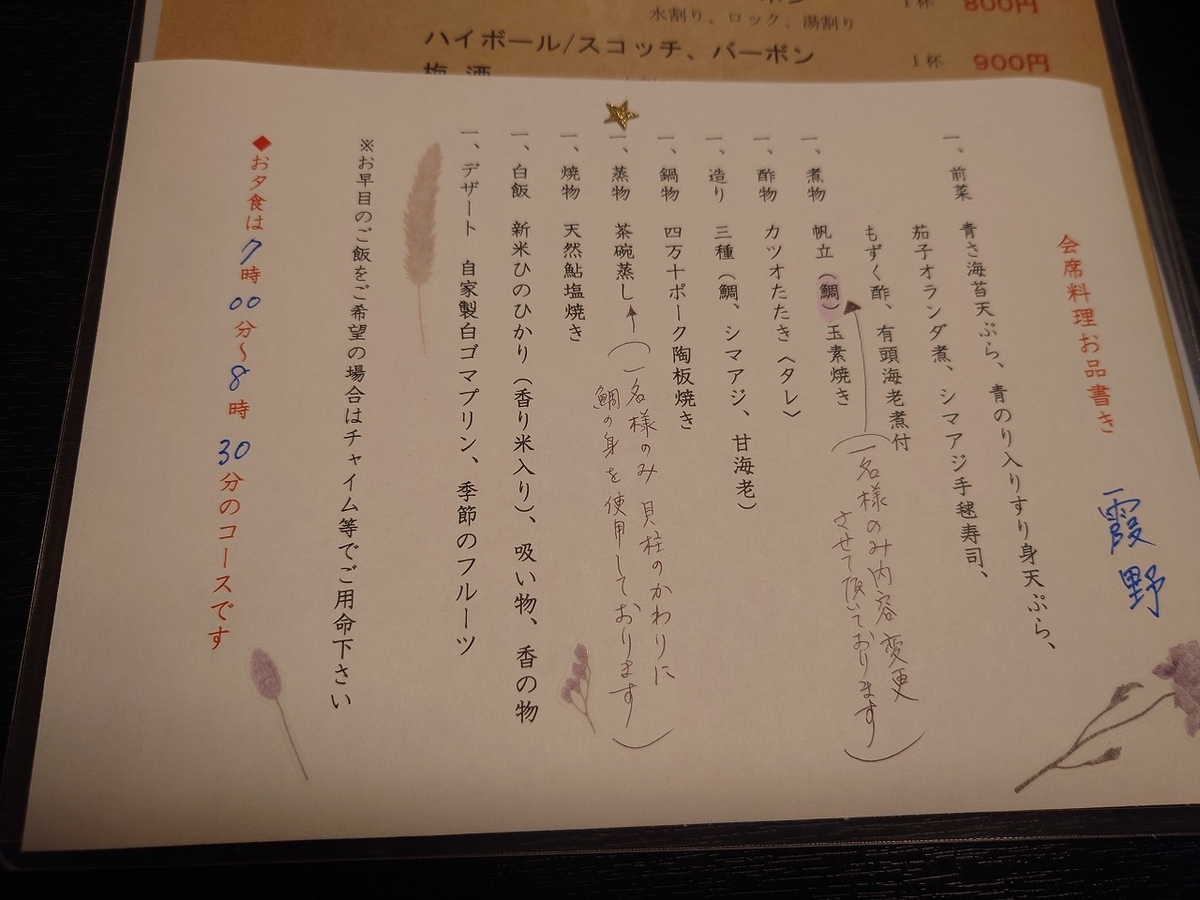 水割り、ロック、湯割り
1杯 800円
ハイボール/スコッチ、バーボン 1杯 900円
梅酒
会席料理お品書き
霞野
一、前菜 青さ海苔天ぷら、青のり入りすり身天ぷら、
茄子オランダ煮、シマアジ手毬寿司、
もずく酢、有頭海老煮付
一、煮物 帆立(鯛)玉素焼き
(一名様のみ内容変更
させて頂いております)
一、酢物 カツオたたき〈タレ〉
一、造り 三種(鯛、シマアジ、甘海老)
一、鍋物 四万十ポーク陶板焼き
一、蒸物 茶碗蒸し
(一名様のみ貝柱のかわりに
鯛の身を使用しております)
一、焼物 天然鮎塩焼き
一、白飯 新米ひのひかり(香り米入り)、吸い物、香の物
一、デザート 自家製白ゴマプリン、季節のフルーツ
※お早目のご飯をご希望の場合はチャイム等でご用命下さい
◆お夕食は7時00分〜8時30分のコースです